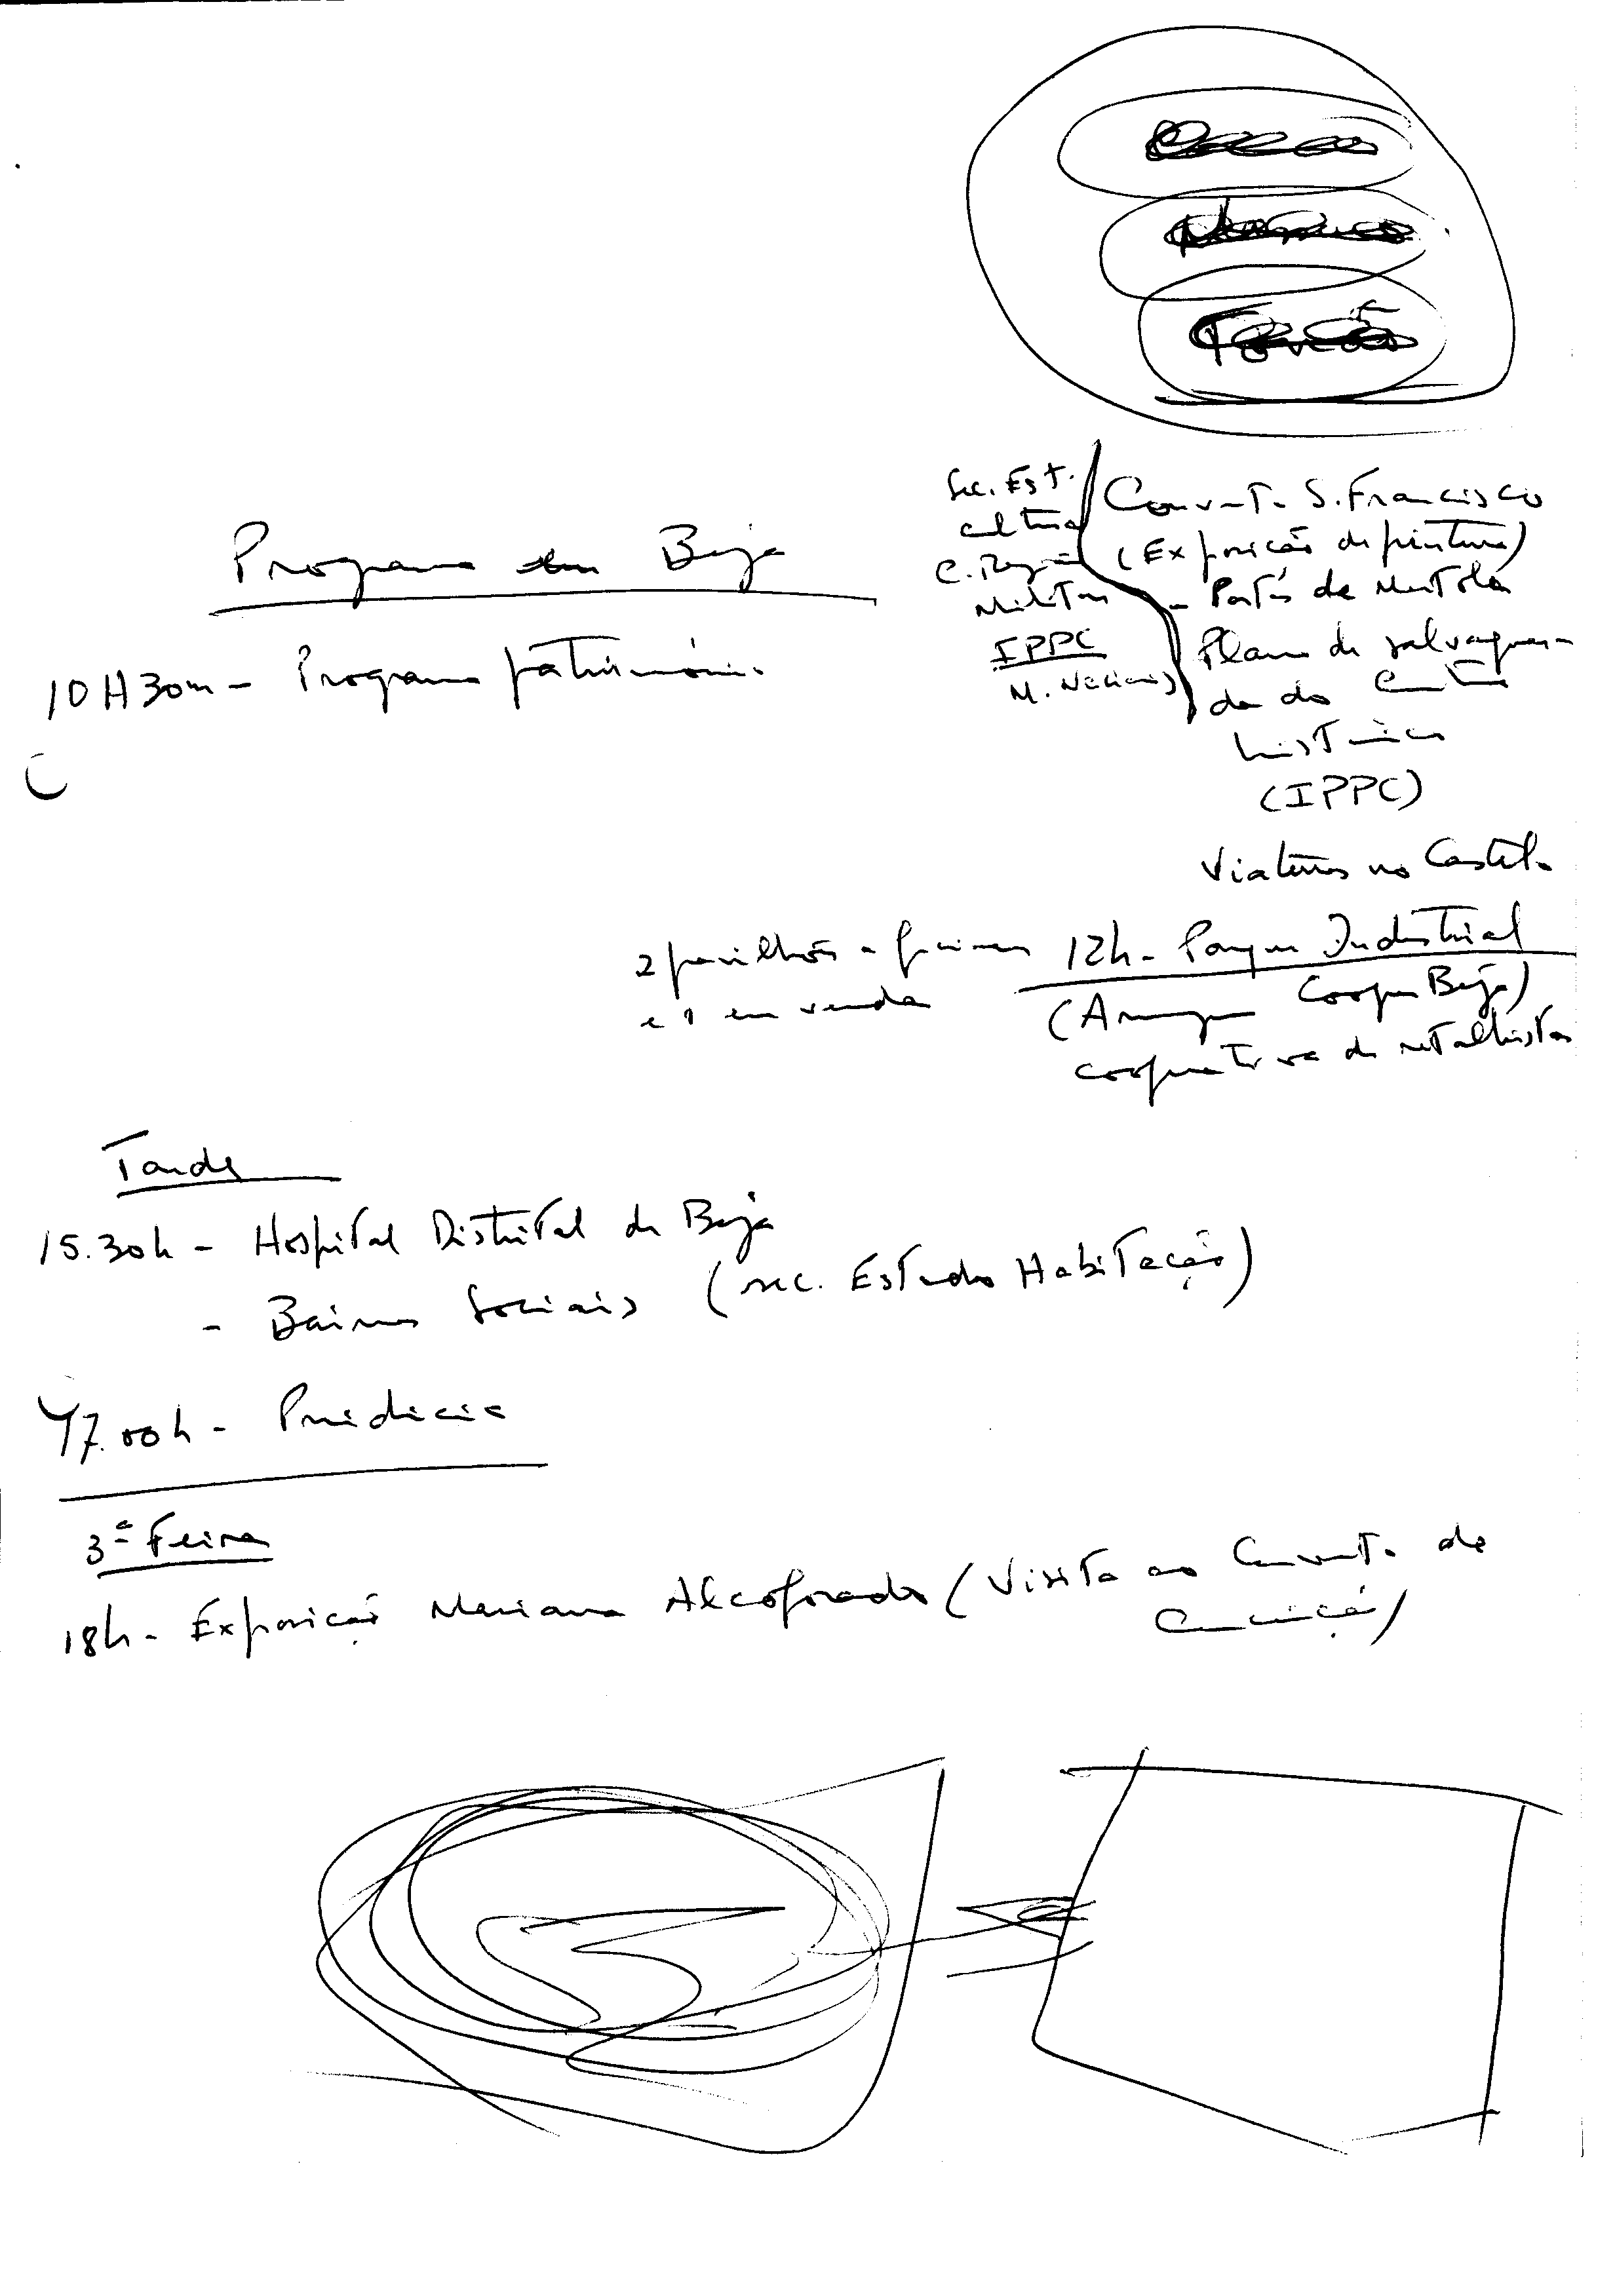 Programa em Beja
10H30m - Programa património
Sec. Est.
Cultura
C. Região
Militar
IPPC
M. Negócios
Convento S. Francisco
(Exposição de pintura)
- Portas de Mértola
Plano de salvaguar-
da do Centro
histórico
(IPPC)
Viaturas no Castelo
2 pavilhões a funcionar
e 1 em venda
12h - Parque Industrial
(Cooper Beja)
cooperativa de retalhistas
Tarde
15.30h - Hospital Distrital de Beja
- Bairros Sociais (sec. Estado Habitação)
17.00h -
3ª Feira
18h - Exposição Mariana Alcoforado (Visita ao Convento de
Conceição)